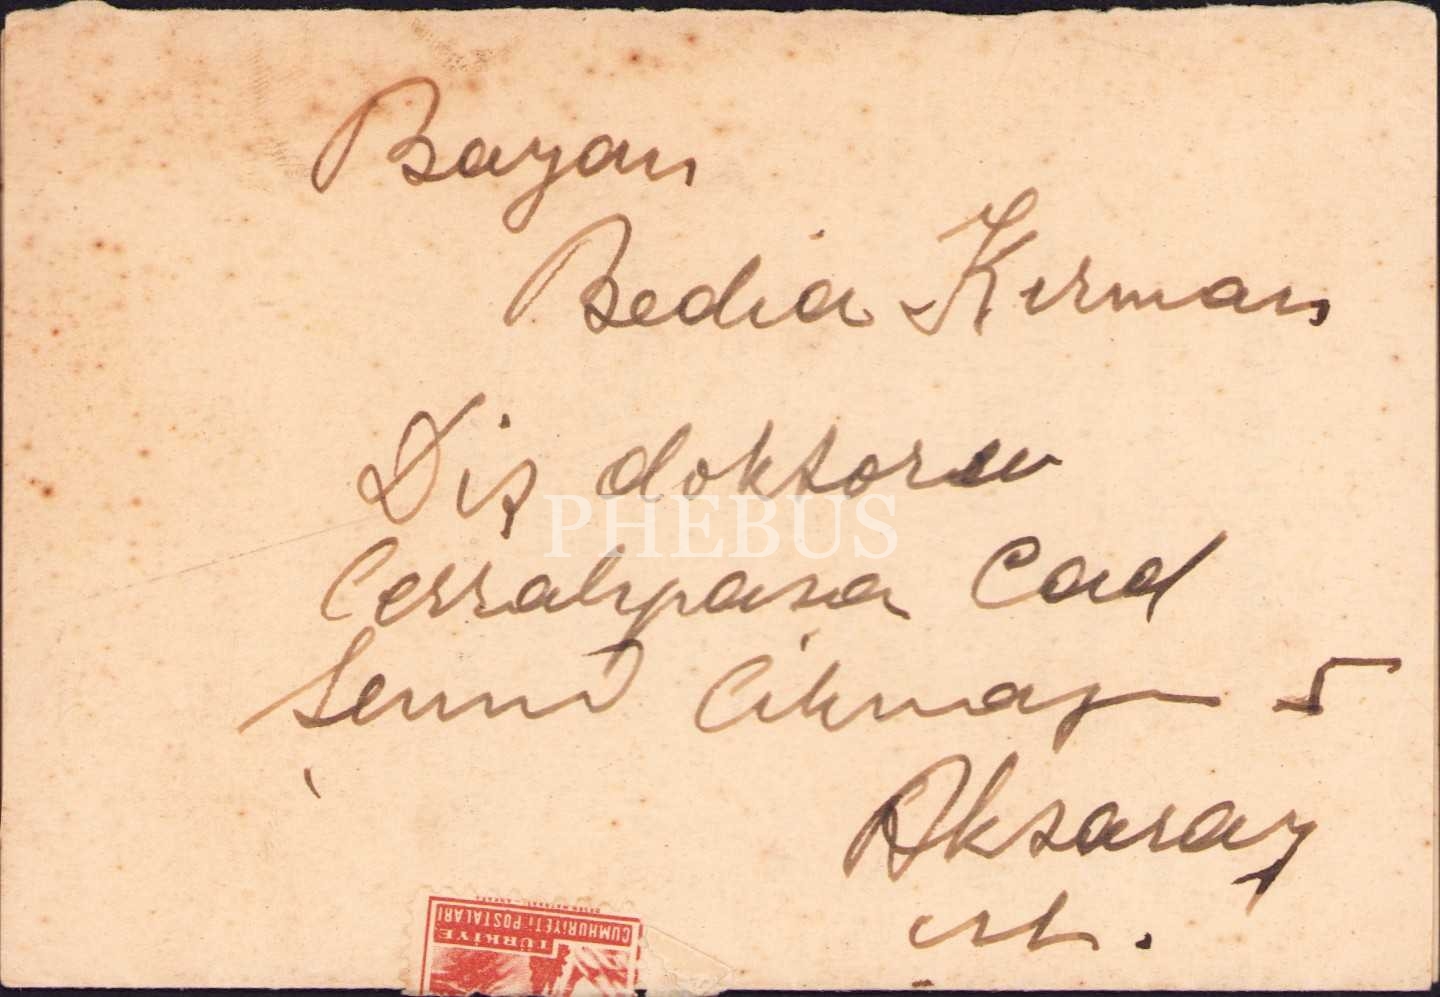 Bayan
Bedia Kırman
Diş doktoru
PHEBUS
Cerrahpaşa Cad
Çıkmazı 5
Aksaray
ist.
CUMHURİYETİ POSTALARI
TÜRKİYE